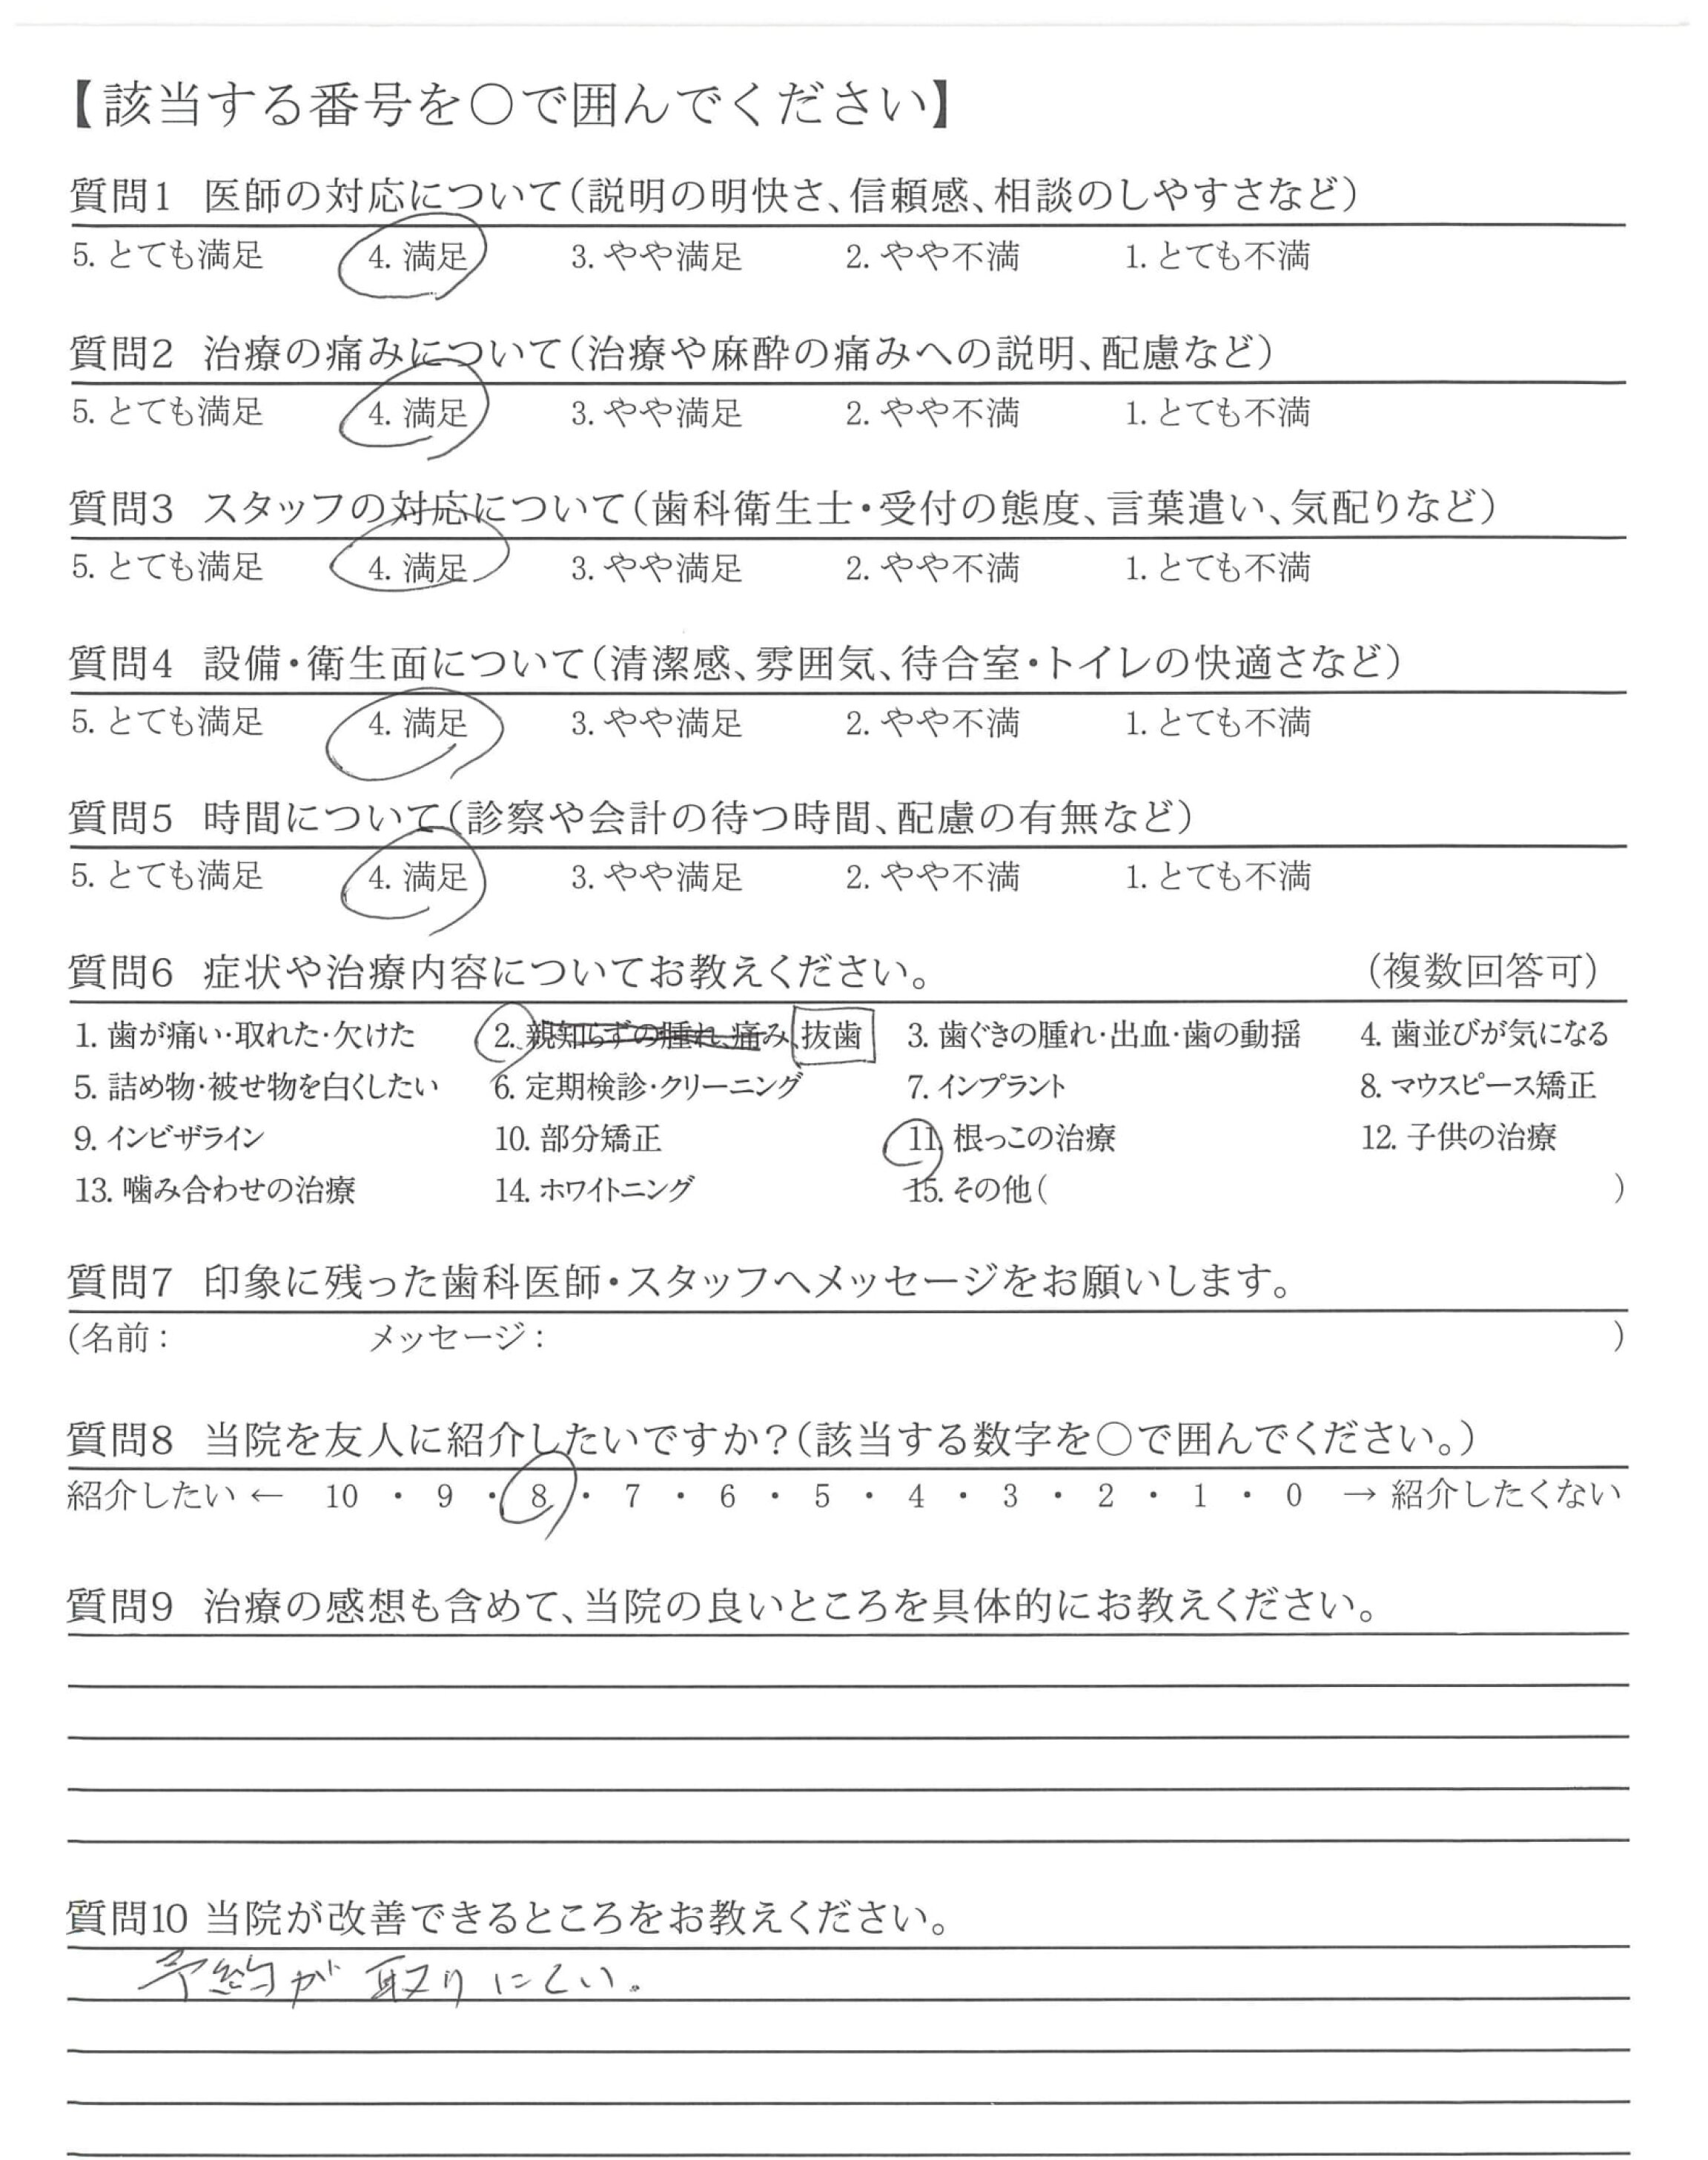 【該当する番号を○で囲んでください】
質問1 医師の対応について(説明の明快さ、信頼感、相談のしやすさなど)
5. とても満足 4. 満足 3. やや満足 2. やや不満 1. とても不満
質問2 治療の痛みについて(治療や麻酔の痛みへの説明、配慮など)
5. とても満足 4. 満足 3. やや満足 2. やや不満 1. とても不満
質問3 スタッフの対応について(歯科衛生士・受付の態度、言葉遣い、気配りなど)
5. とても満足 4. 満足 3. やや満足 2. やや不満 1. とても不満
質問4 設備・衛生面について(清潔感、雰囲気、待合室・トイレの快適さなど)
5. とても満足 4. 満足 3. やや満足 2. やや不満 1. とても不満
質問5 時間について(診察や会計の待つ時間、配慮の有無など)
5. とても満足 4. 満足 3. やや満足 2. やや不満 1. とても不満
質問6 症状や治療内容についてお教えください。 (複数回答可)
1. 歯が痛い・取れた・欠けた 2. 親知らずの腫れ、痛み、抜歯 3. 歯ぐきの腫れ・出血・歯の動揺 4. 歯並びが気になる
5. 詰め物・被せ物を白くしたい 6. 定期検診・クリーニング 7. インプラント 8. マウスピース矯正
9. インビザライン 10. 部分矯正 11. 根っこの治療 12. 子供の治療
13. 噛み合わせの治療 14. ホワイトニング 15. その他( )
質問7 印象に残った歯科医師・スタッフへメッセージをお願いします。
(名前: メッセージ: )
質問8 当院を友人に紹介したいですか?(該当する数字を○で囲んでください。)
紹介したい ← 10 ・ 9 ・ 8 ・ 7 ・ 6 ・ 5 ・ 4 ・ 3 ・ 2 ・ 1 ・ 0 → 紹介したくない
質問9 治療の感想も含めて、当院の良いところを具体的にお教えください。
質問10 当院が改善できるところをお教えください。
予約が取りにくい。